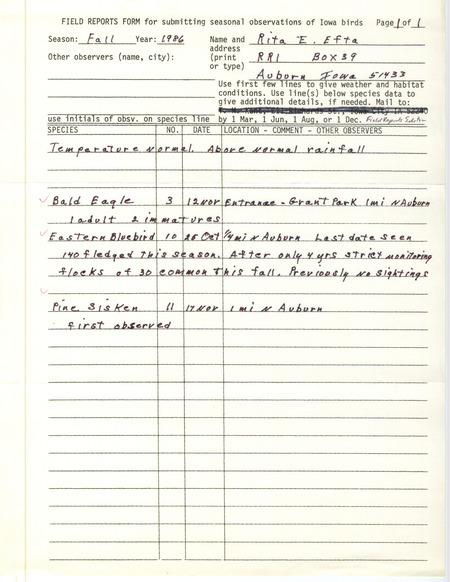 FIELD REPORTS FORM for submitting seasonal observations of Iowa birds Page 1 of 1
Season: Fall Year: 1986 Name and Rita E. Efta
Other observers (name, city): address
(print RR1 Box 39
or type)
Auburn Iowa 51433
Use first few lines to give weather and habitat
conditions. Use line(s) below species data to
give additional details, if needed. Mail to:
use initials of obsv. on species line by 1 Mar, 1 Jun, 1 Aug, or 1 Dec. Field Reports Editor
SPECIES NO. DATE LOCATION - COMMENT - OTHER OBSERVERS
Temperature Normal. Above Normal rainfall
Bald Eagle 3 12 Nov Entrance - Grant Park 1 mi N Auburn
1 adult 2 immatures
Eastern Bluebird 10 25 Oct 1/4 mi N Auburn Last date seen
140 fledged this season. After only 4 yrs strict monitoring
flocks of 30 common this fall. Previously No Sightings
Pine Sisken 11 17 Nov 1 mi N Auburn
first observed